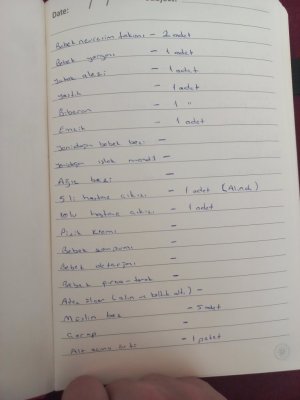 Date:
Bebek nevresim takımı - 2 adet
Bebek yorganı - 1 adet
Yatak alezi - 1 adet
Yastık - 1 adet
Biberon - 1 "
Emzik - 1 adet
Yenidoğan bebek bezi -
Yenidoğan ıslak mendil -
Ağız bezi -
5 li hastane çıkışı - 1 adet (Alındı)
10lu hastane çıkışı - 1 adet
Pişik kremi -
Bebek şampuanı -
Bebek deterjanı -
Bebek fırça-tarak -
Ateş ölçer (alın ve koltuk altı) -
Müslin bez - 5 adet
Çorap -
- 1 paket